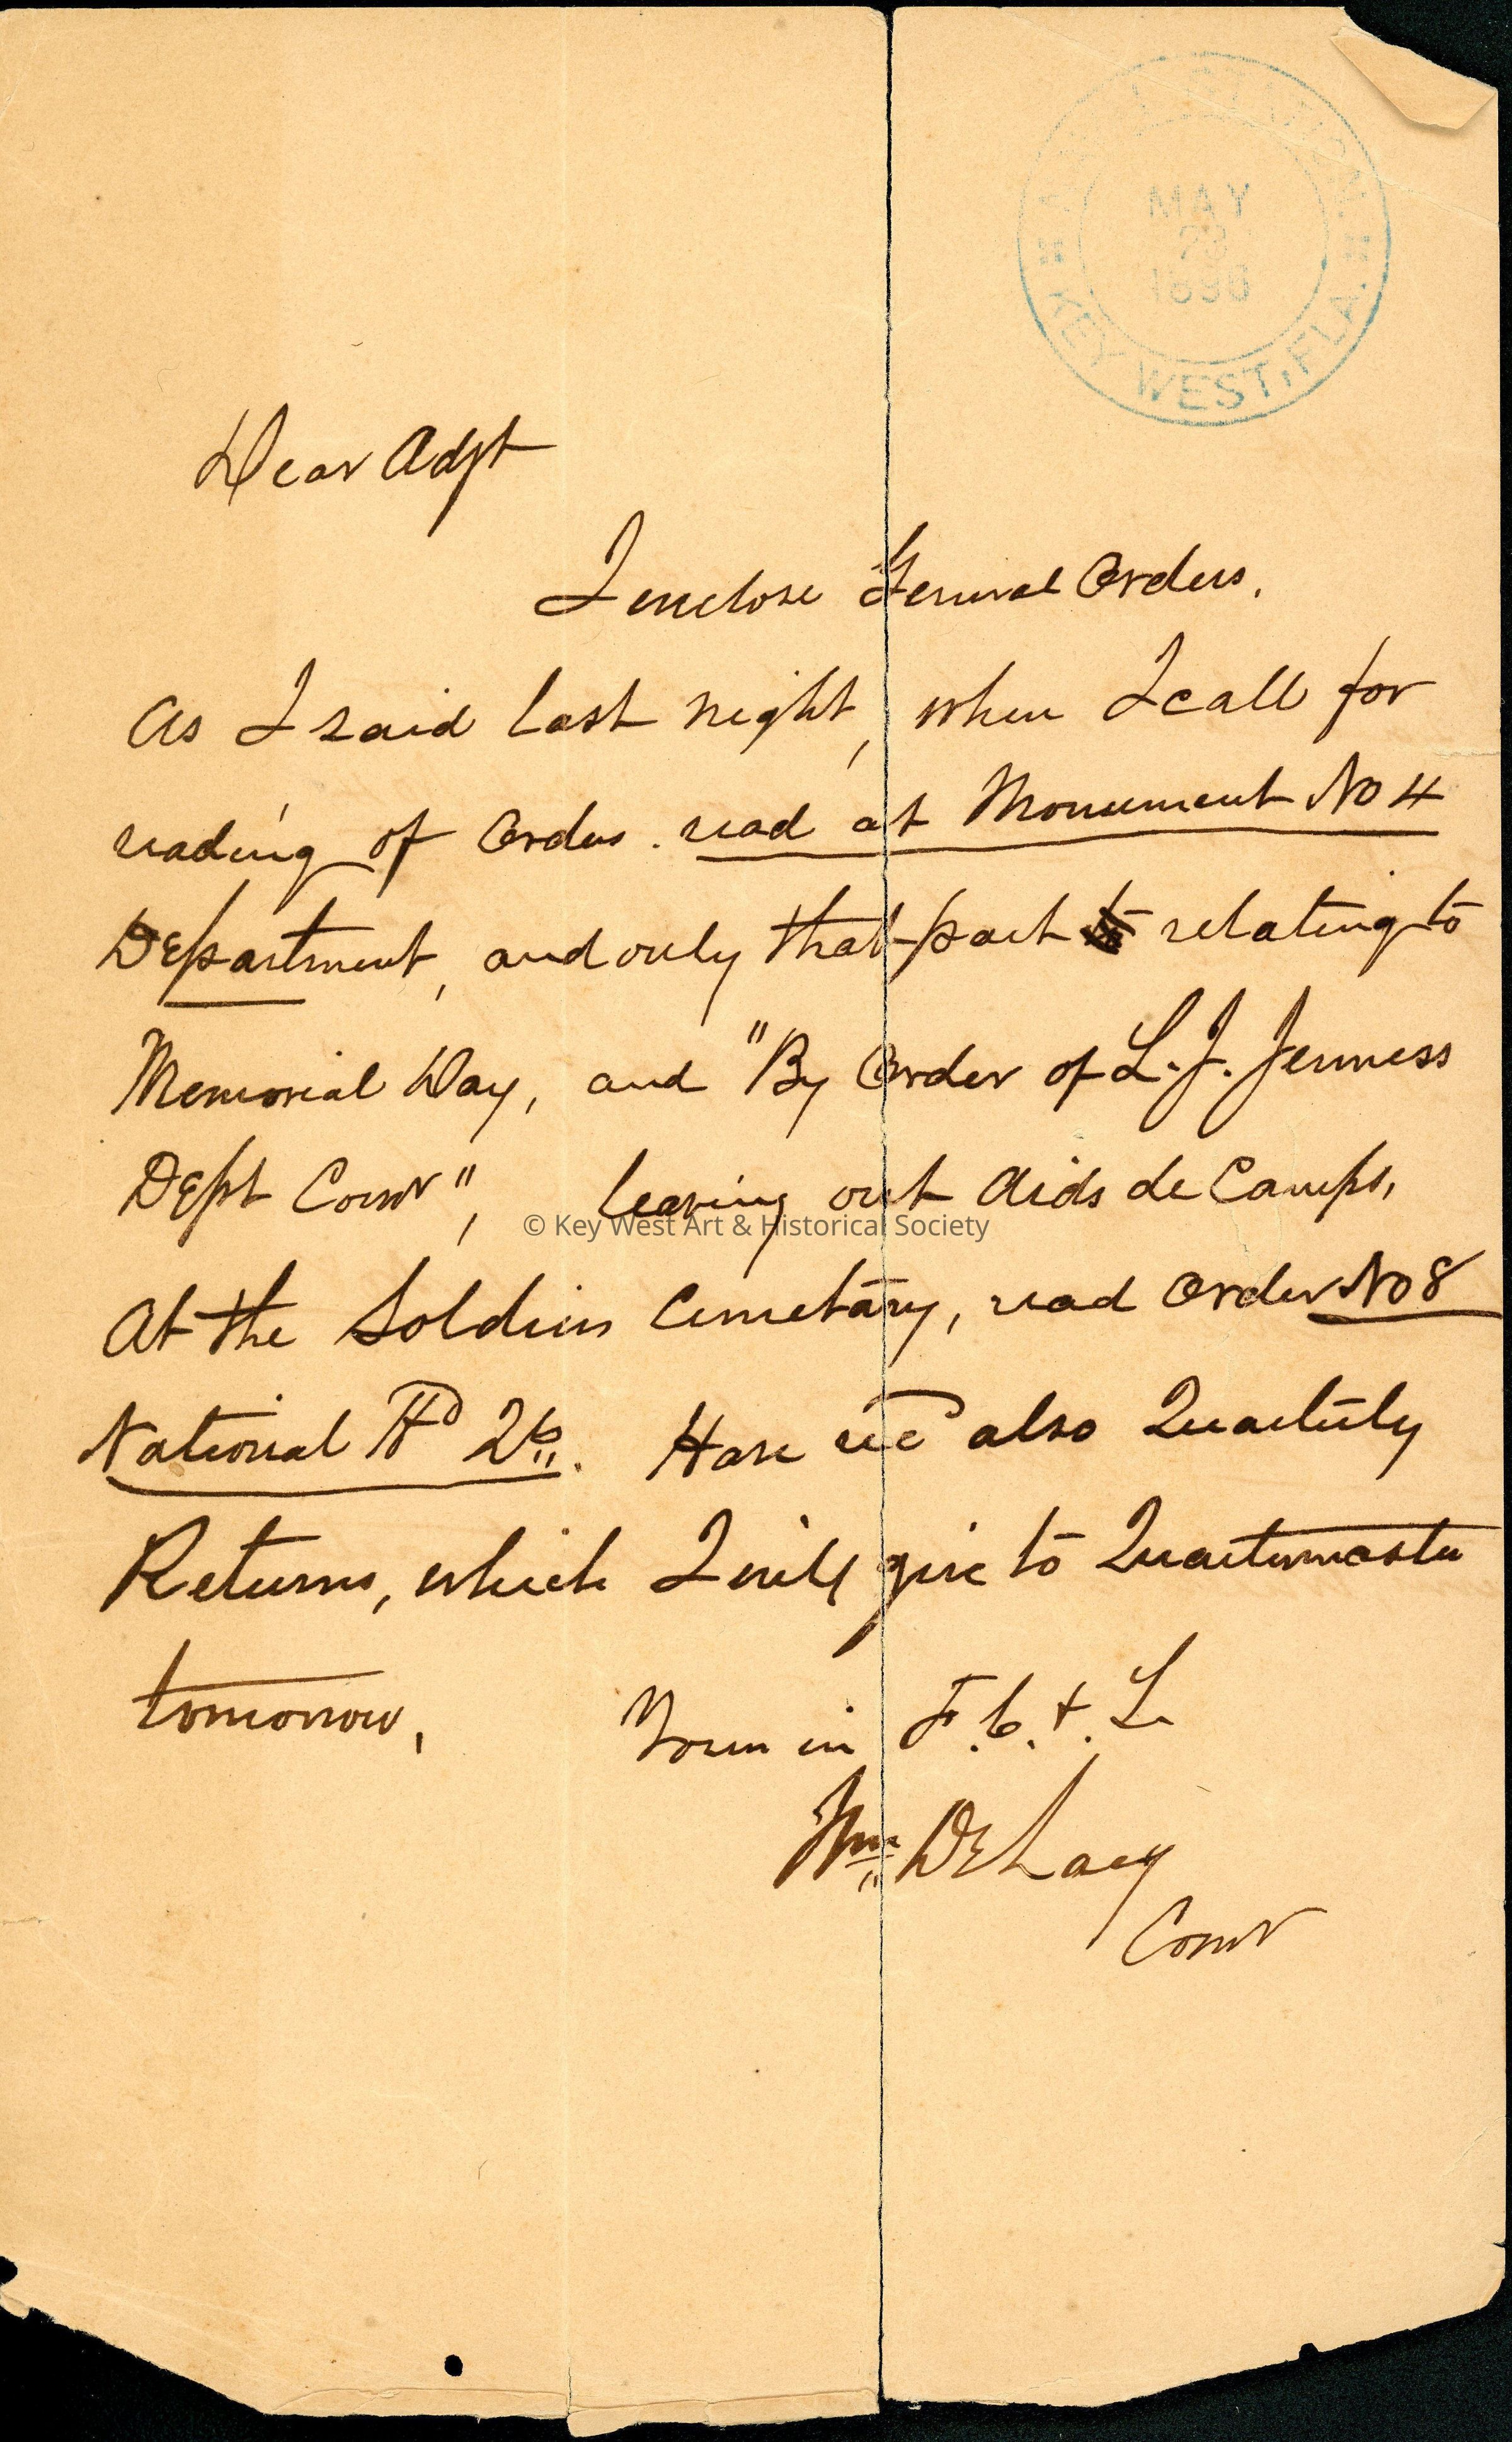 MAY
23
KEY WEST, FLA.
Dear Adjt
I enclose General Orders.
As I said last night, when I call for
reading of Orders. read at Monument No 4
Department, and only that part relating to
Memorial Day, and "By Order of L. J. Jenness
Dept Comr", leaving out Aids de Camps.
At the Soldiers Cemetary, read Order No 8
National Hd Qts. Have recd also Quarterly
Returns, which I will give to Quartermaster
tomorrow,
Yours in F. C. & L.
Wm DeLacy
Comr
© Key West Art & Historical Society